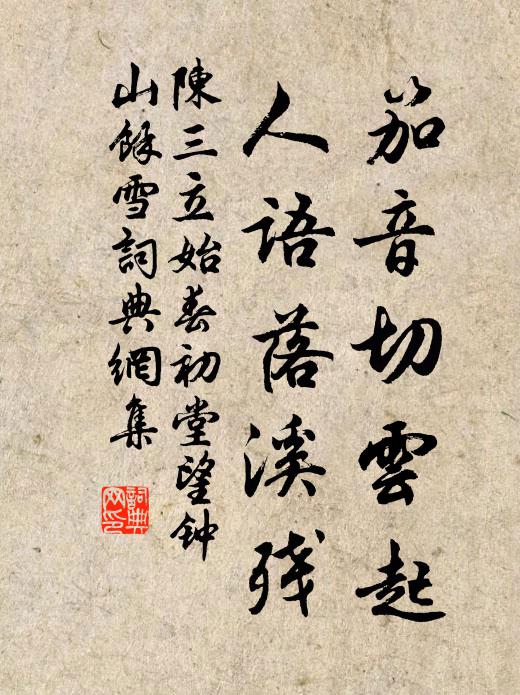 笳音切雲起
人語落溪残
陳三立始春初堂望钟
山餘雪詞典網集
詞典
网印